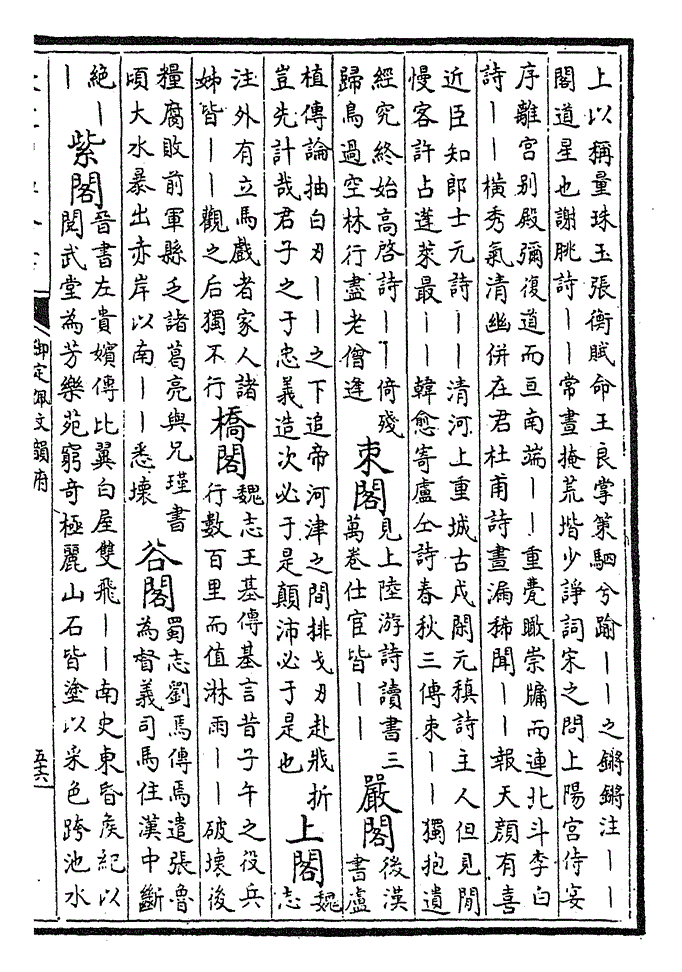 上以稱量珠玉張衡賦命王良掌策駟兮踰——之鏘鏘注——
閣道星也謝朓詩——常晝掩荒堦少諍詞宋之問上陽宮侍宴
序離宮别殿彌復道而亘南端——重甍瞰崇牖而連北斗李白
詩——橫秀氣清幽併在君杜甫詩晝漏稀聞——報天顔有喜
近臣知郎士元詩——清河上重城古戍閑元稹詩主人但見閒
慢客許占蓬萊最——韓愈寄盧仝詩春秋三傳束——獨抱遺
經究終始高啓詩——倚殘
歸鳥過空林行盡老僧逢
束閣
見上陸游詩讀書三
萬卷仕宦皆——
嚴閣
後漢
書盧
植傳論抽白刃——之下追帝河津之間排戈刃赴戕折
豈先計哉君子之于忠義造次必于是顛沛必于是也
上閣
魏
志
注外有立馬戲者家人諸
姊皆——觀之后獨不行
橋閣
魏志王基傳基言昔子午之役兵
行數百里而值淋雨——破壞後
糧腐敗前軍縣乏諸葛亮與兄瑾書
頃大水暴出赤岸以南——悉壞
谷閣
蜀志劉焉傳焉遣張魯
為督義司馬住漢中斷
絶—
—
紫閣
晉書左貴嬪傳比翼白屋雙飛——南史東昏侯紀以
閱武堂為芳樂苑窮奇極麗山石皆塗以采色跨池水
御定佩文韻府